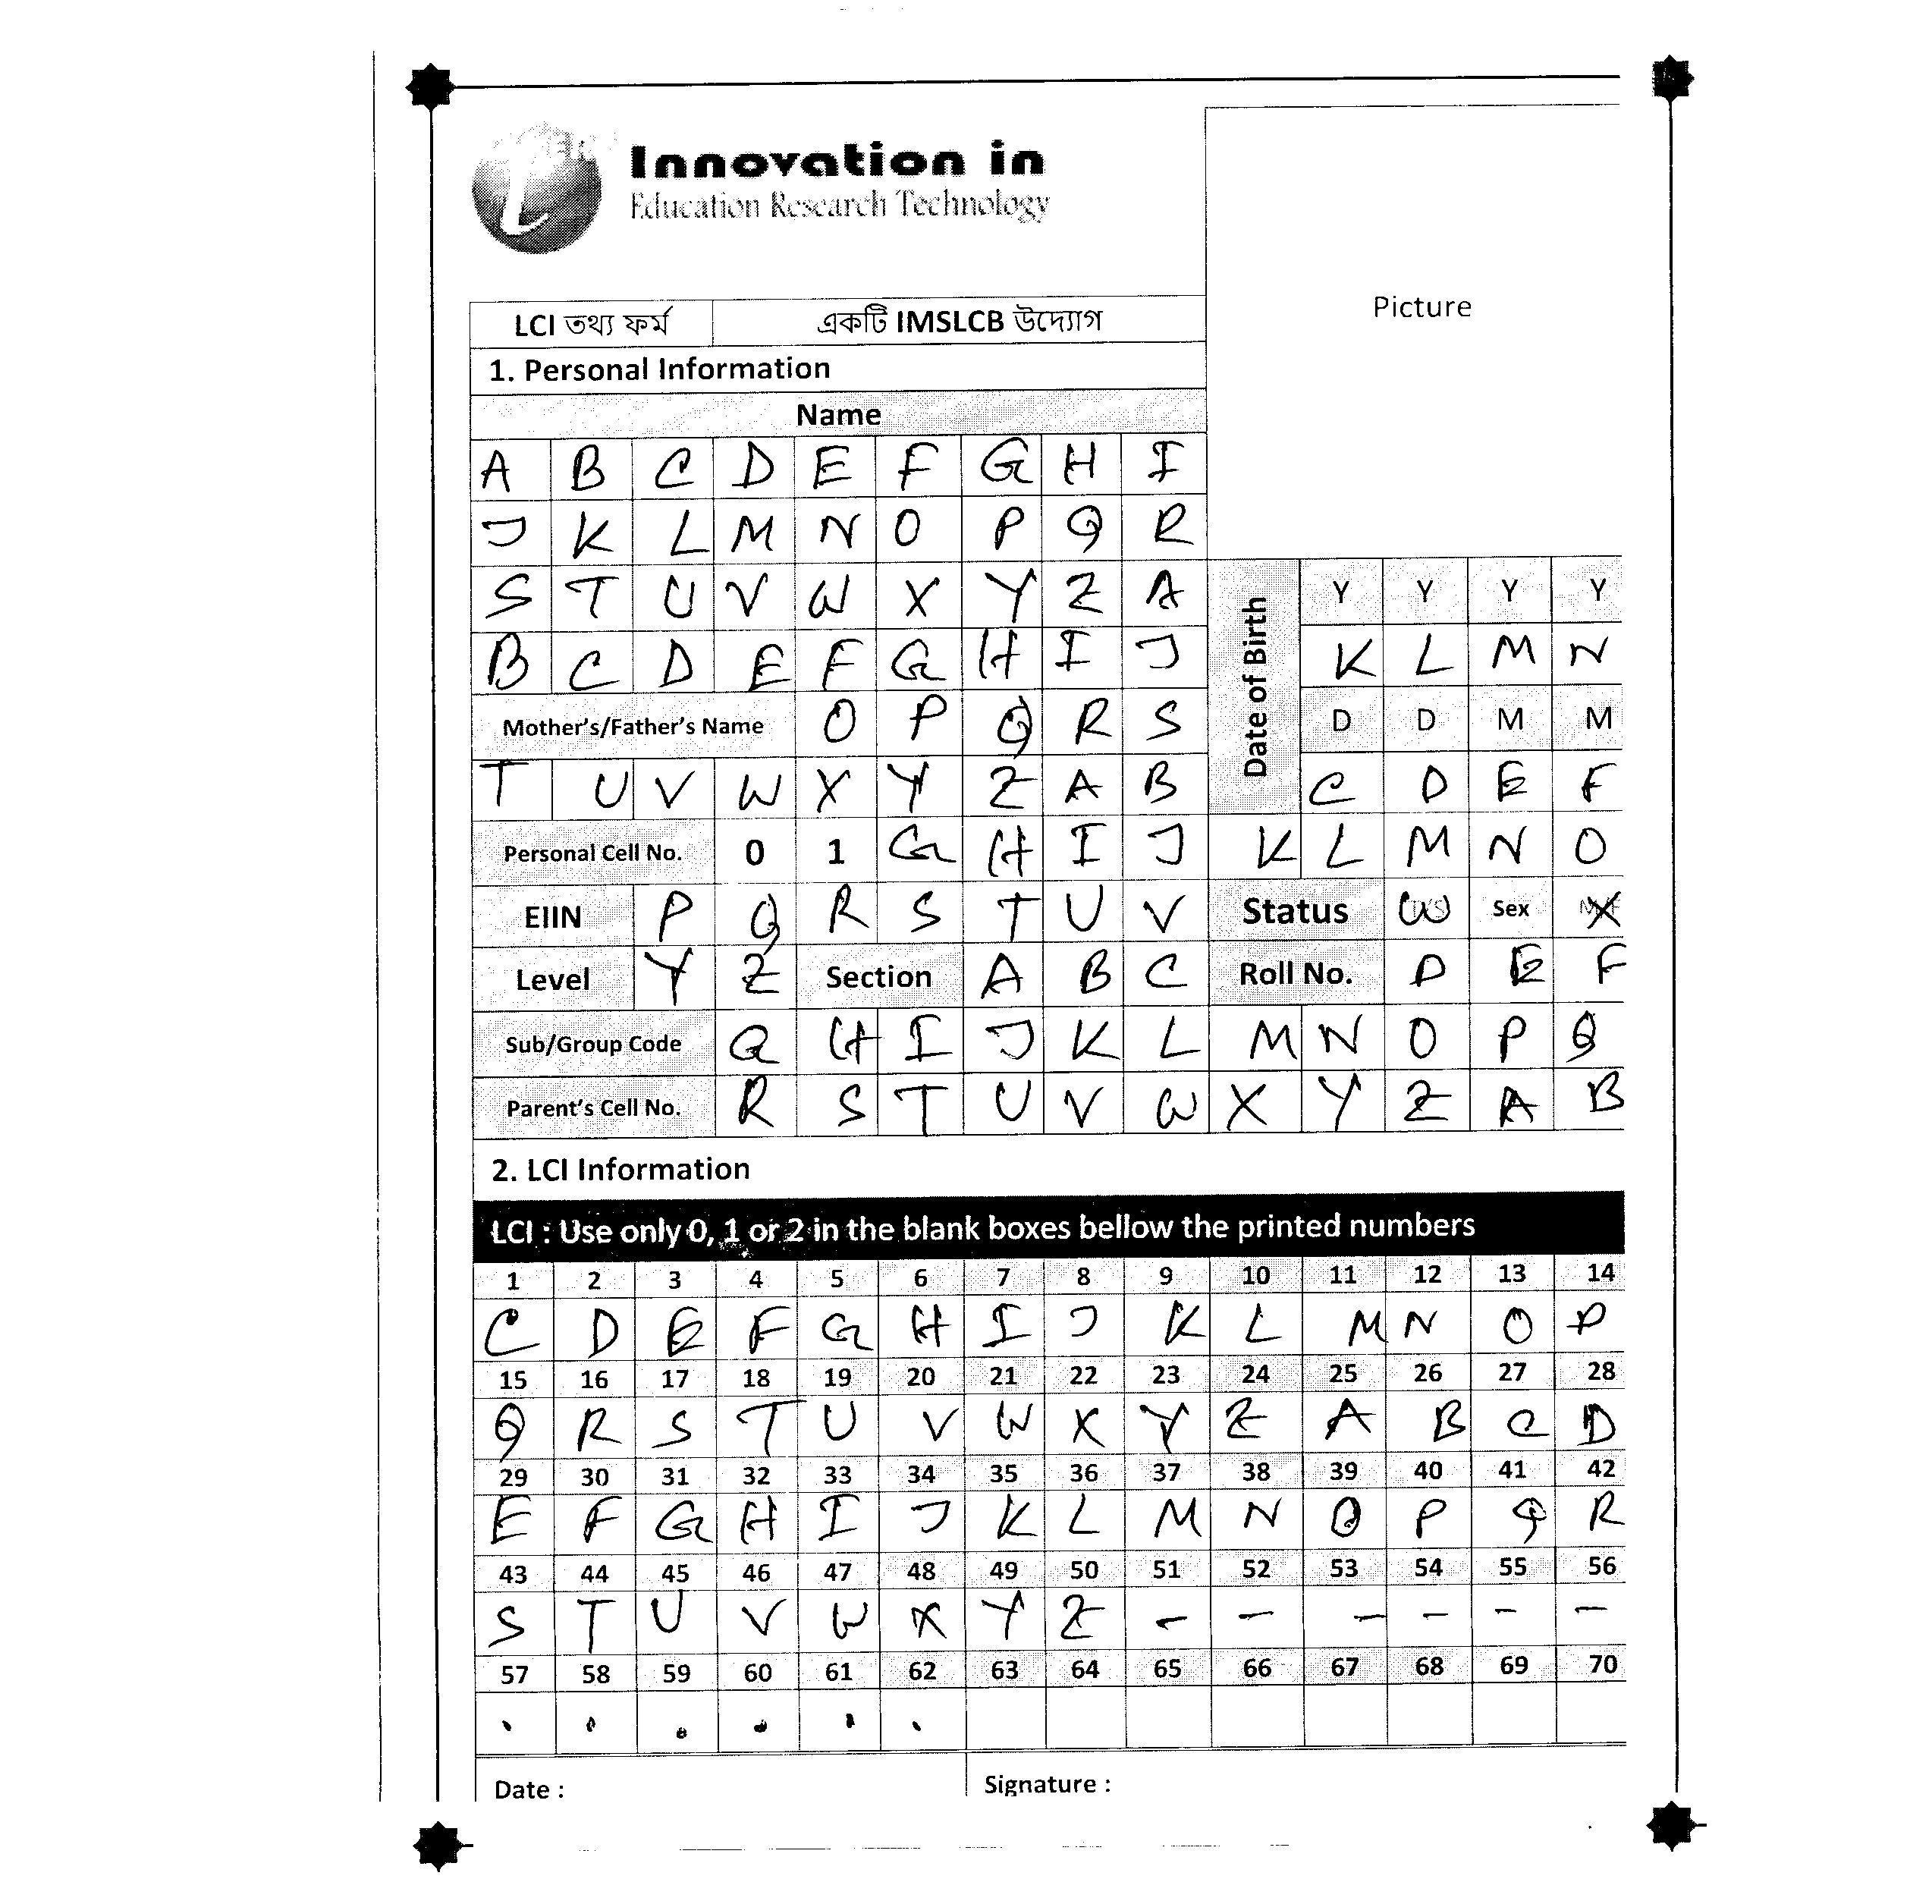 Innovation in
Education Research Technology
Picture
LCI তথ্য ফর্ম একটি IMSLCB উদ্যোগ
1. Personal Information
Name
A B C D E F G H I
J K L M N O P Q R
S T U V W X Y Z A
Date of Birth Y Y Y Y
B C D E F G H I J K L M N
Mother's/Father's Name O P Q R S D D M M
T U V W X Y Z A B C D E F
Personal Cell No. 0 1 G H I J K L M N O
EIIN P Q R S T U V Status W Sex X
Level Y Z Section A B C Roll No. D E F
Sub/Group Code G H I J K L M N O P Q
Parent's Cell No. R S T U V W X Y Z A B
2. LCI Information
LCI : Use only 0, 1 or 2 in the blank boxes bellow the printed numbers
1 2 3 4 5 6 7 8 9 10 11 12 13 14
C D E F G H I J K L M N O P
15 16 17 18 19 20 21 22 23 24 25 26 27 28
Q R S T U V W X Y Z A B C D
29 30 31 32 33 34 35 36 37 38 39 40 41 42
E F G H I J K L M N O P Q R
43 44 45 46 47 48 49 50 51 52 53 54 55 56
S T U V W X Y Z - - - - - -
57 58 59 60 61 62 63 64 65 66 67 68 69 70
. . . . . .
Date : Signature :